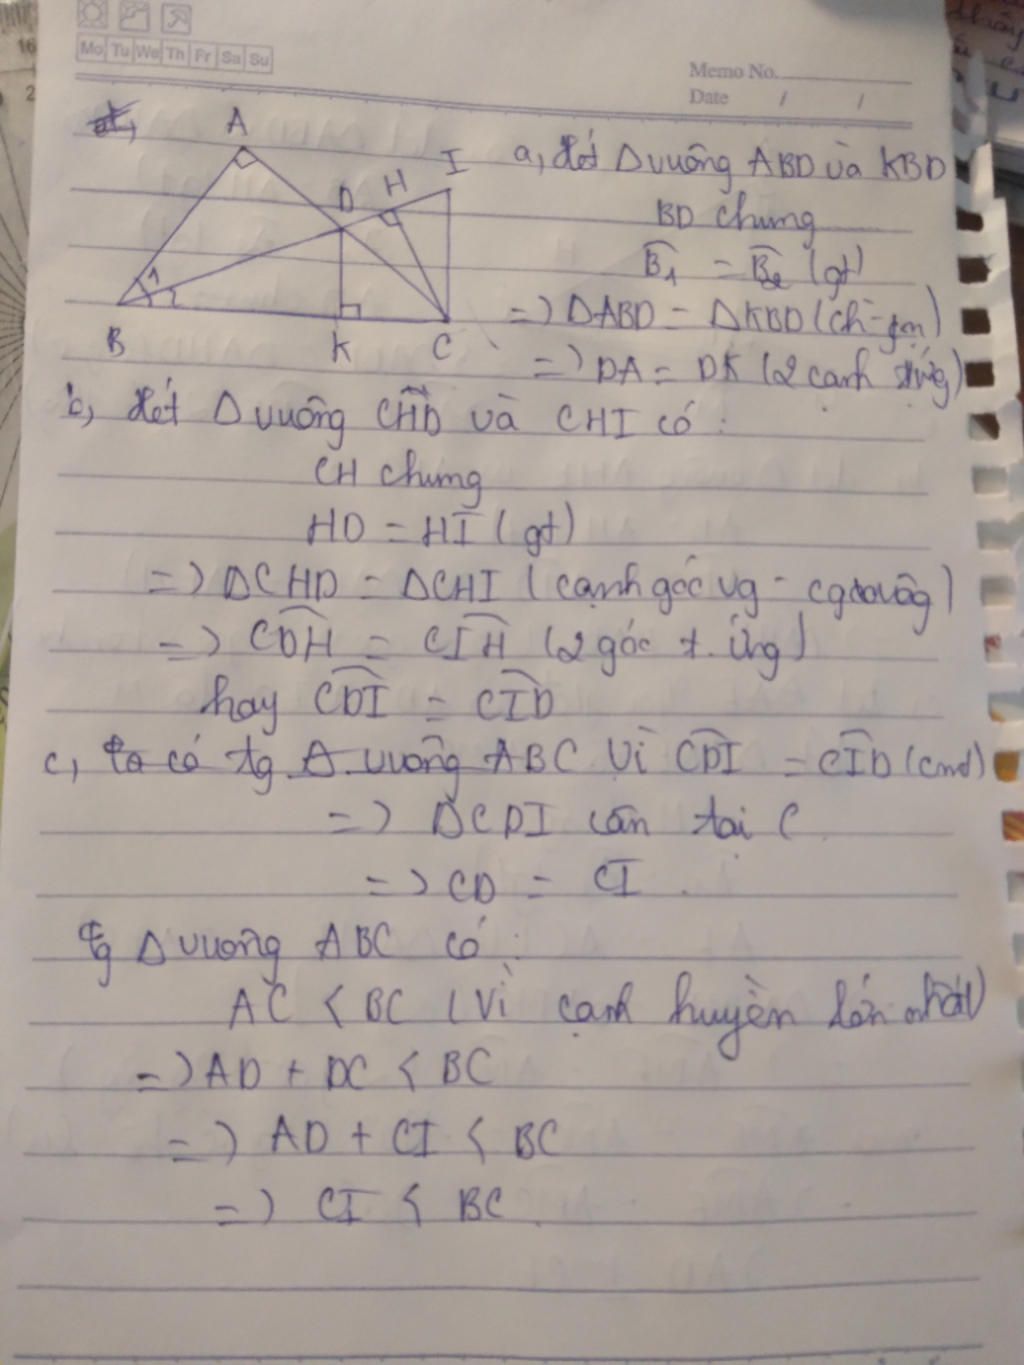 Mo Tu We Th Fr Sa Su
Memo No.
Date / /
A
I
H
D
1
2
B
K
C
a, Xét Δ vuông ABD và KBD
BD chung
B̂₁ = B̂₂ (gt)
=> ΔABD = ΔKBD (ch-gn)
=> DA = DK (2 cạnh t/ứng)
b, Xét Δ vuông CHD và CHI có:
CH chung
HD = HI (gt)
=> ΔCHD = ΔCHI (cạnh góc vg - cgvuông)
=> CDH = CIH (2 góc t.ứng)
hay CDI = CID
c, ta có tg Δ vuông ABC Vì CDI = CID (cmt)
=> ΔCDI cân tại C
=> CD = CI.
tg Δ vuông ABC có:
AC < BC (vì cạnh huyền lớn nhất)
=> AD + DC < BC
=> AD + CI < BC
=> CI < BC
16
2